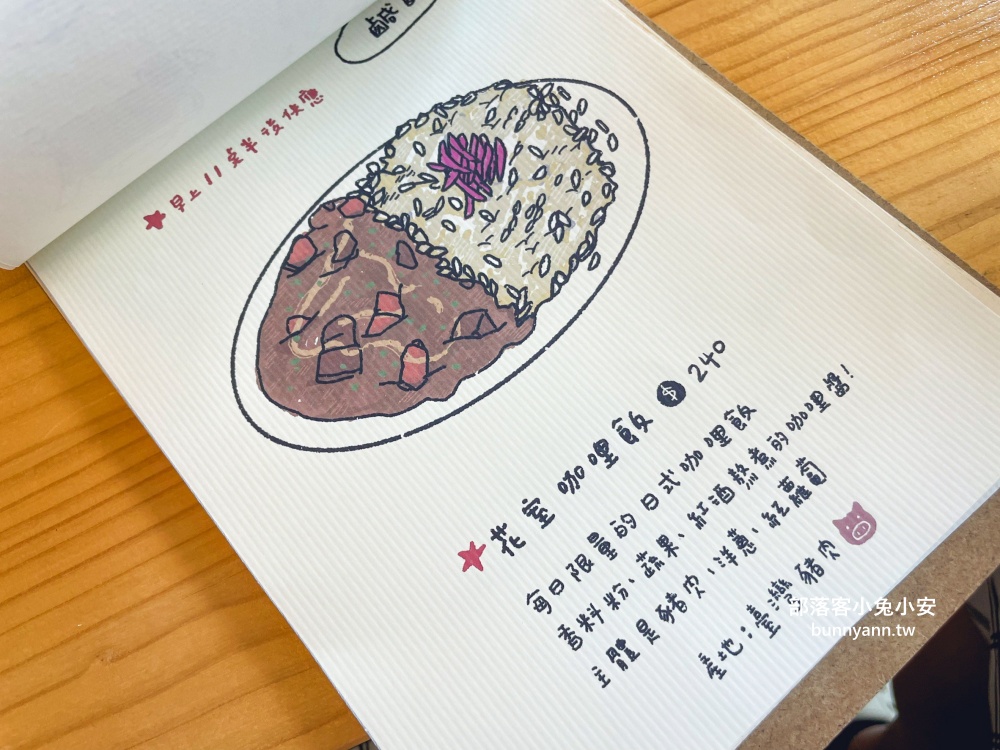 鹵咸
早上11点半後供應
花室咖哩飯 $ 240
每日限量的日式咖哩飯
香料粉、蔬果、紅酒熬煮的咖哩醬!
主體是豬肉、洋蔥、紅蘿蔔
產地:臺灣豬肉
部落客小兔小安
bunnyann.tw